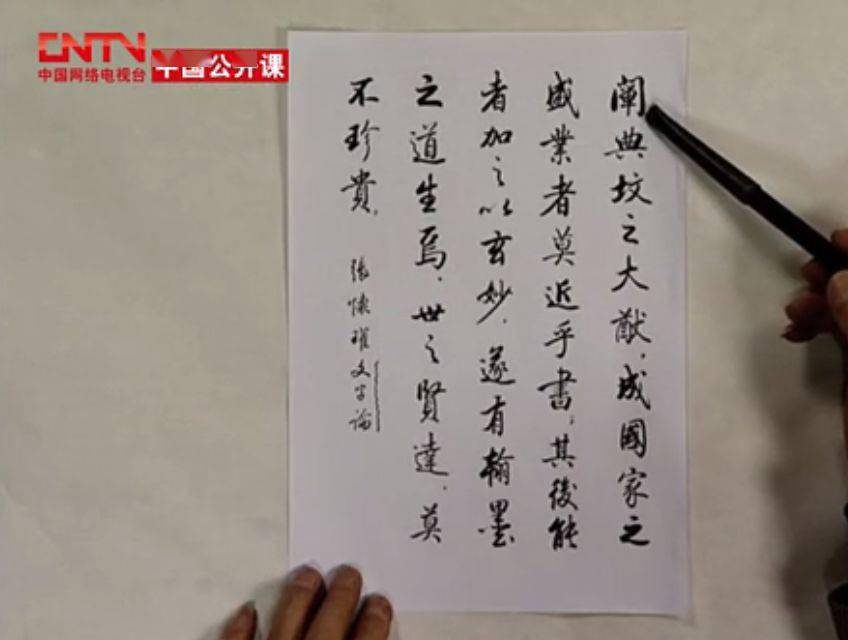 CNTN
中国网络电视台
中国公开课
闡典坟之大猷，成國家之
盛業者莫近乎書，其後能
者加之以玄妙，遂有翰墨
之道生焉，世之賢達，莫
不珍貴，
張懷瓘文字論